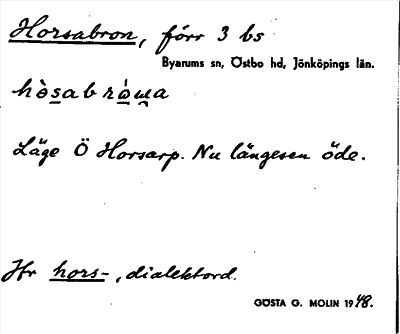 Horsabron, förr 3 bs
Byarums sn, Östbo hd, Jönköpings län.
Läge Ö Horsarp. Nu längesen öde.
Hr hors-, dialektord.
GÖSTA G. MOLIN 1948.